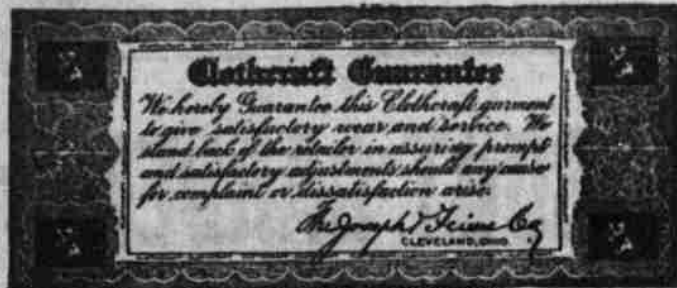 Clothcraft Guarantee
We hereby Guarantee this Clothcraft garment
to give satisfactory wear and service. We
stand back of the retailer in assuring prompt
and satisfactory adjustments should any cause
for complaint or dissatisfaction arise.
The Joseph & Feiss Co
CLEVELAND, OHIO.